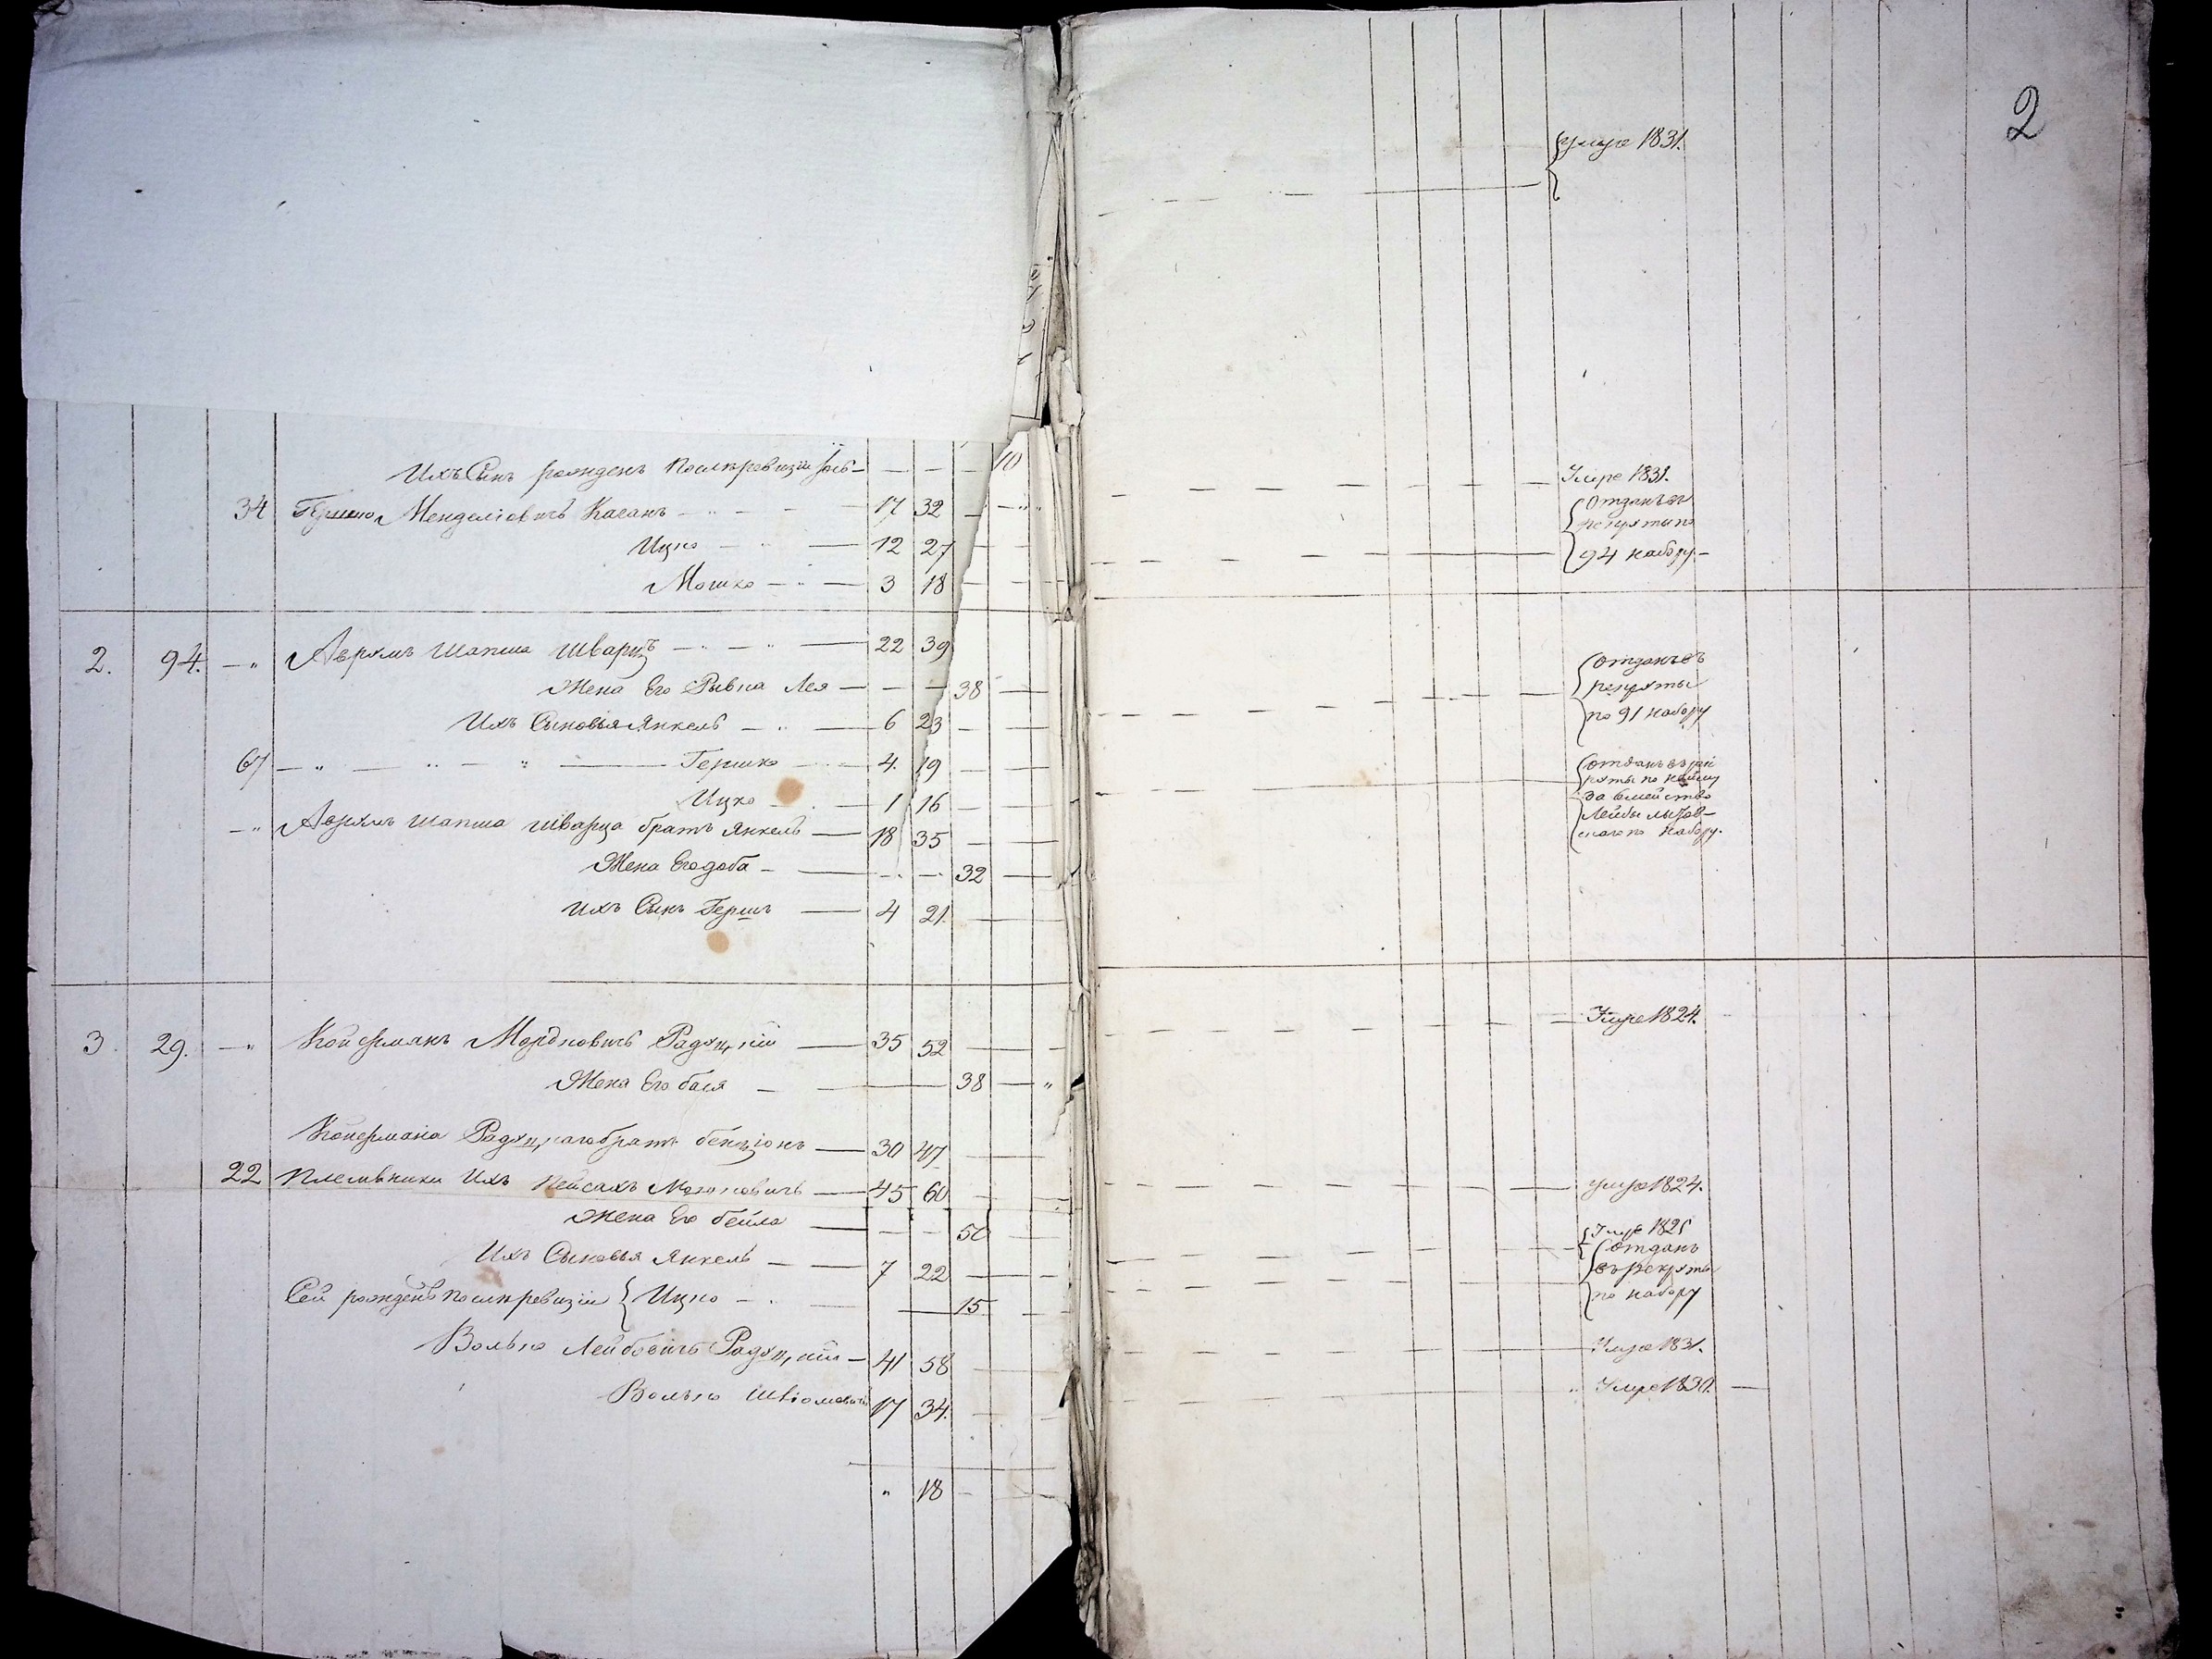 2
умре 1831.
Ихъ Сынъ рожденъ послѣ ревизіи — — — 10
Умре 1831.
34 Гершко Менделіовичъ Каганъ — 17 32 —
Отданъ въ рекруты по 94 набору —
Ицко — 12 27 —
Мошко — 3 18 —
2. 94. — Аврумъ Шапша Шварцъ — 22 39
Жена Его Рывка Лея — — — 38 —
Отданъ въ
рекруты
по 91 набору
Ихъ Сыновья Янкель — 6 23 —
67 — Гершко — 4. 19 —
Отданъ въ рек
руты по набору
за Семейство
Лейбы
набору.
Ицко — 1 16 —
— Аврумъ Шапша Шварца братъ Янкель — 18 35 —
Жена Его доба — — — 32 —
Ихъ Сынъ Гершъ — 4 21. —
3. 29. — Мордковичъ — 35 52 —
Умре 1824.
Жена Его бася — 38 —
братъ бенціонъ — 30 47 —
22 Племѣнники Ихъ Пейсахъ — 45 60 —
умре 1824.
Жена Его бейла — — — 50
Умре 182
Ихъ Сыновья Янкель — 7 22 —
Отданъ
въ рекруты
по набору
Сей рожденъ послѣ ревизіи { Ицко — 15 —
Волько Лейбовичъ — 41 58 —
Умре 1831.
Волько — 17 34. —
Умре 1830. —
" 18 —